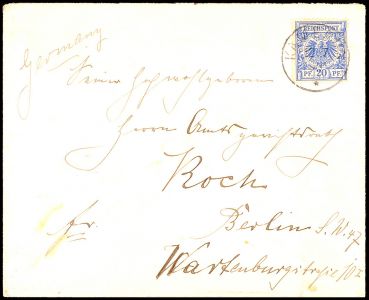 Germany
REICHSPOST
PF 20 PF
Seiner Hochwohlgeboren
Herrn Amtsgerichtsrath
Koch
fr.
Berlin S.W.47
Wartenburgstrasse 10 II